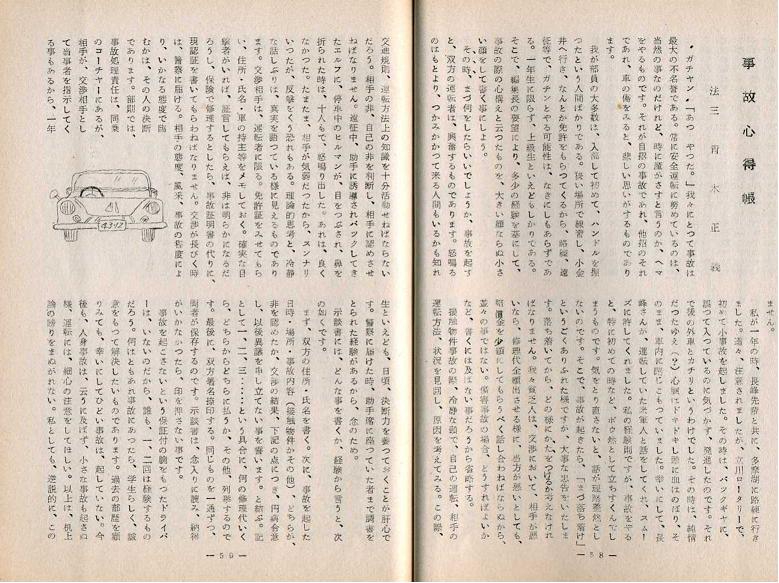 事故心得帳
法三 青木正義
"ガチャン"「あつ やつた。」我々にとつて事故は
最大の不名誉である。常に安全運転に努めているのは、
当然の事なのだけれど、時に魔がさすと言うのか、ヘマ
をやるものです。それが自招の事故であれ、他招のそれ
であれ、車の傷をみると、悲しい思いがするものであり
ます。
我が部員の大多数は、入部して初めて、ハンドルを握
つたという人間ばかりである。狭い場所で練習し、小金
井へ行き、なんとか免許をもらつてくるから、路練、遠
征等で、ガチャンとやる可能性は、なきにしもあらずであ
る。一年生に限らず、上級生といえどもしかりである。
そこで、編集長の要望により、多少の経験を基にして、
事故の際の心構えと云つたものを、大きい顔ならぬ小さ
い顔をして書く事にしよう。
その時、まづ何をしたらいいでしょうか、事故を起す
と、双方の運転者は、興奮するものであります。怒鳴る
のはもとより、つかみかかつて来る人間もいるかも知れ
ません。
私が一年の時、長峰先輩と共に、多摩湖に路練に行き
ました。適々、注意されましたが、立川ロータリーで、
初めて小事故を起しました。その時は、バツクギヤに、
誤つて入つているのに気づかず、発進したのです。それ
で後の外車とカチリというわけでした。その時は、純情
だつたゆえ(?)心臓はドキドキ、頭に血はのぼり、そ
のまま、車内に閉じこもつていました。幸いにして、長
峰さんが、運転していた米軍人と話をしてくれ、スムー
ズに許してくれました。私の経験則ですが、事故をやる
と、特に初めての時など、ボウ然として立ちすくんでし
まうものです。気をとり直さないと、話が理路整然とし
ないのです。そこで、事故が起きたら、「まづ落ち着け」
というごくありふれた様ですが、大事な忠告をいたしま
す。落ち着いてから、どの様にかたをつけるか考えなけれ
ばなりません。我々貧乏人は、交渉において、相手が悪
いなら、修理代全額出させる様に、当方が悪いとしても、
賠償金を少額にしてもらうべく話し合わねばならぬから、
並々の事ではない。傷害事故の場合、どうすればよいか
など、書くには及ばない事だろうから省略する。
接触物件事故の際、冷静な頭で、自己の運転、相手の
運転方法、状況を見回し、原因を考えてみる。この際、
— 58 —
交通規則、運転方法上の知識を十分活動せねばならない
だろう。相手の非、自己の非を判断し、相手に認めさせ
ねばなりません。遠征中、助手に誘導されバツクしてき
たエルフに、停車中のヒルマンが、目をつぶされ、鼻を
折られた時は、十人もで、怒鳴り出した。あれは、良く
なかつた。たまたま、相手が気弱だつたから、スンナリ
いつたが、反撃をくう恐れもある。理論的思考と、冷静
な話しぶりは、真実を語つている様に見えるものであり
ます。交渉相手は、運転者に限る。免許証をみせてもら
い、住所・氏名・車の持主等をメモしておく。確実な目
撃者がいれば、証言してもらえば、非は明らかになるだ
ろうし、保険で修理するとしたら、事故証明書の代りに、
現認証を書いてもらわねばなりません。交渉が長びく時
は、警察に届ける。相手の態度、風采、事故の程度によ
り、いかなる態度で臨
むかは、その人の決断
であります。部則では、
事故処理責任は、同乗
のコーチャーにあるが、
相手が、交渉相手とし
て当事者を指示してく
る事もあるから、一年
4312
生といえども、日頃、決断力を養つておくことが肝心で
す。警察に届けた時、助手席に座つていた者まで調書を
とられた経験があるから、念のため。
示談書には、どんな事を書くか、経験から言うと、次
の如くです。
まず、双方の住所・氏名を書く。次に、事故を起した
日時・場所・事故内容(接触物件かその他)、どちらが、
非を認めたか、交渉の結果、下記の点につき、円満合意
し、以後異議を申し立てない事を誓います。と結ぶ。記
として一、二、三……という具合に、何の修理代いく
ら、どちらからどちらに払うか、その他、列挙するので
す。最後に、双方署名捺印する。同じものを一通ずつ、
両者が保存するのです。示談書は、念入りに読み、納得
がいかなかつたら、印を押さない事です。
事故を起こさないという保証付の腕をもつたドライバ
ーは、いないのだから、誰も、一、二回は経験するもの
だろう。何はともあれ事故にあつたら、学生らしく、誠
意をもつて解決したいものであります。過去の部歴を顧
りみても、幸いにしてひどい事故は、起していない。今
後も、人身事故は、云うに及ばず、小さな事故も起さぬ
様、運転には、細心の注意をしてほしい。以上は、机上
論の謗りをまぬがれない。私としても、逆説的に、この
— 59 —